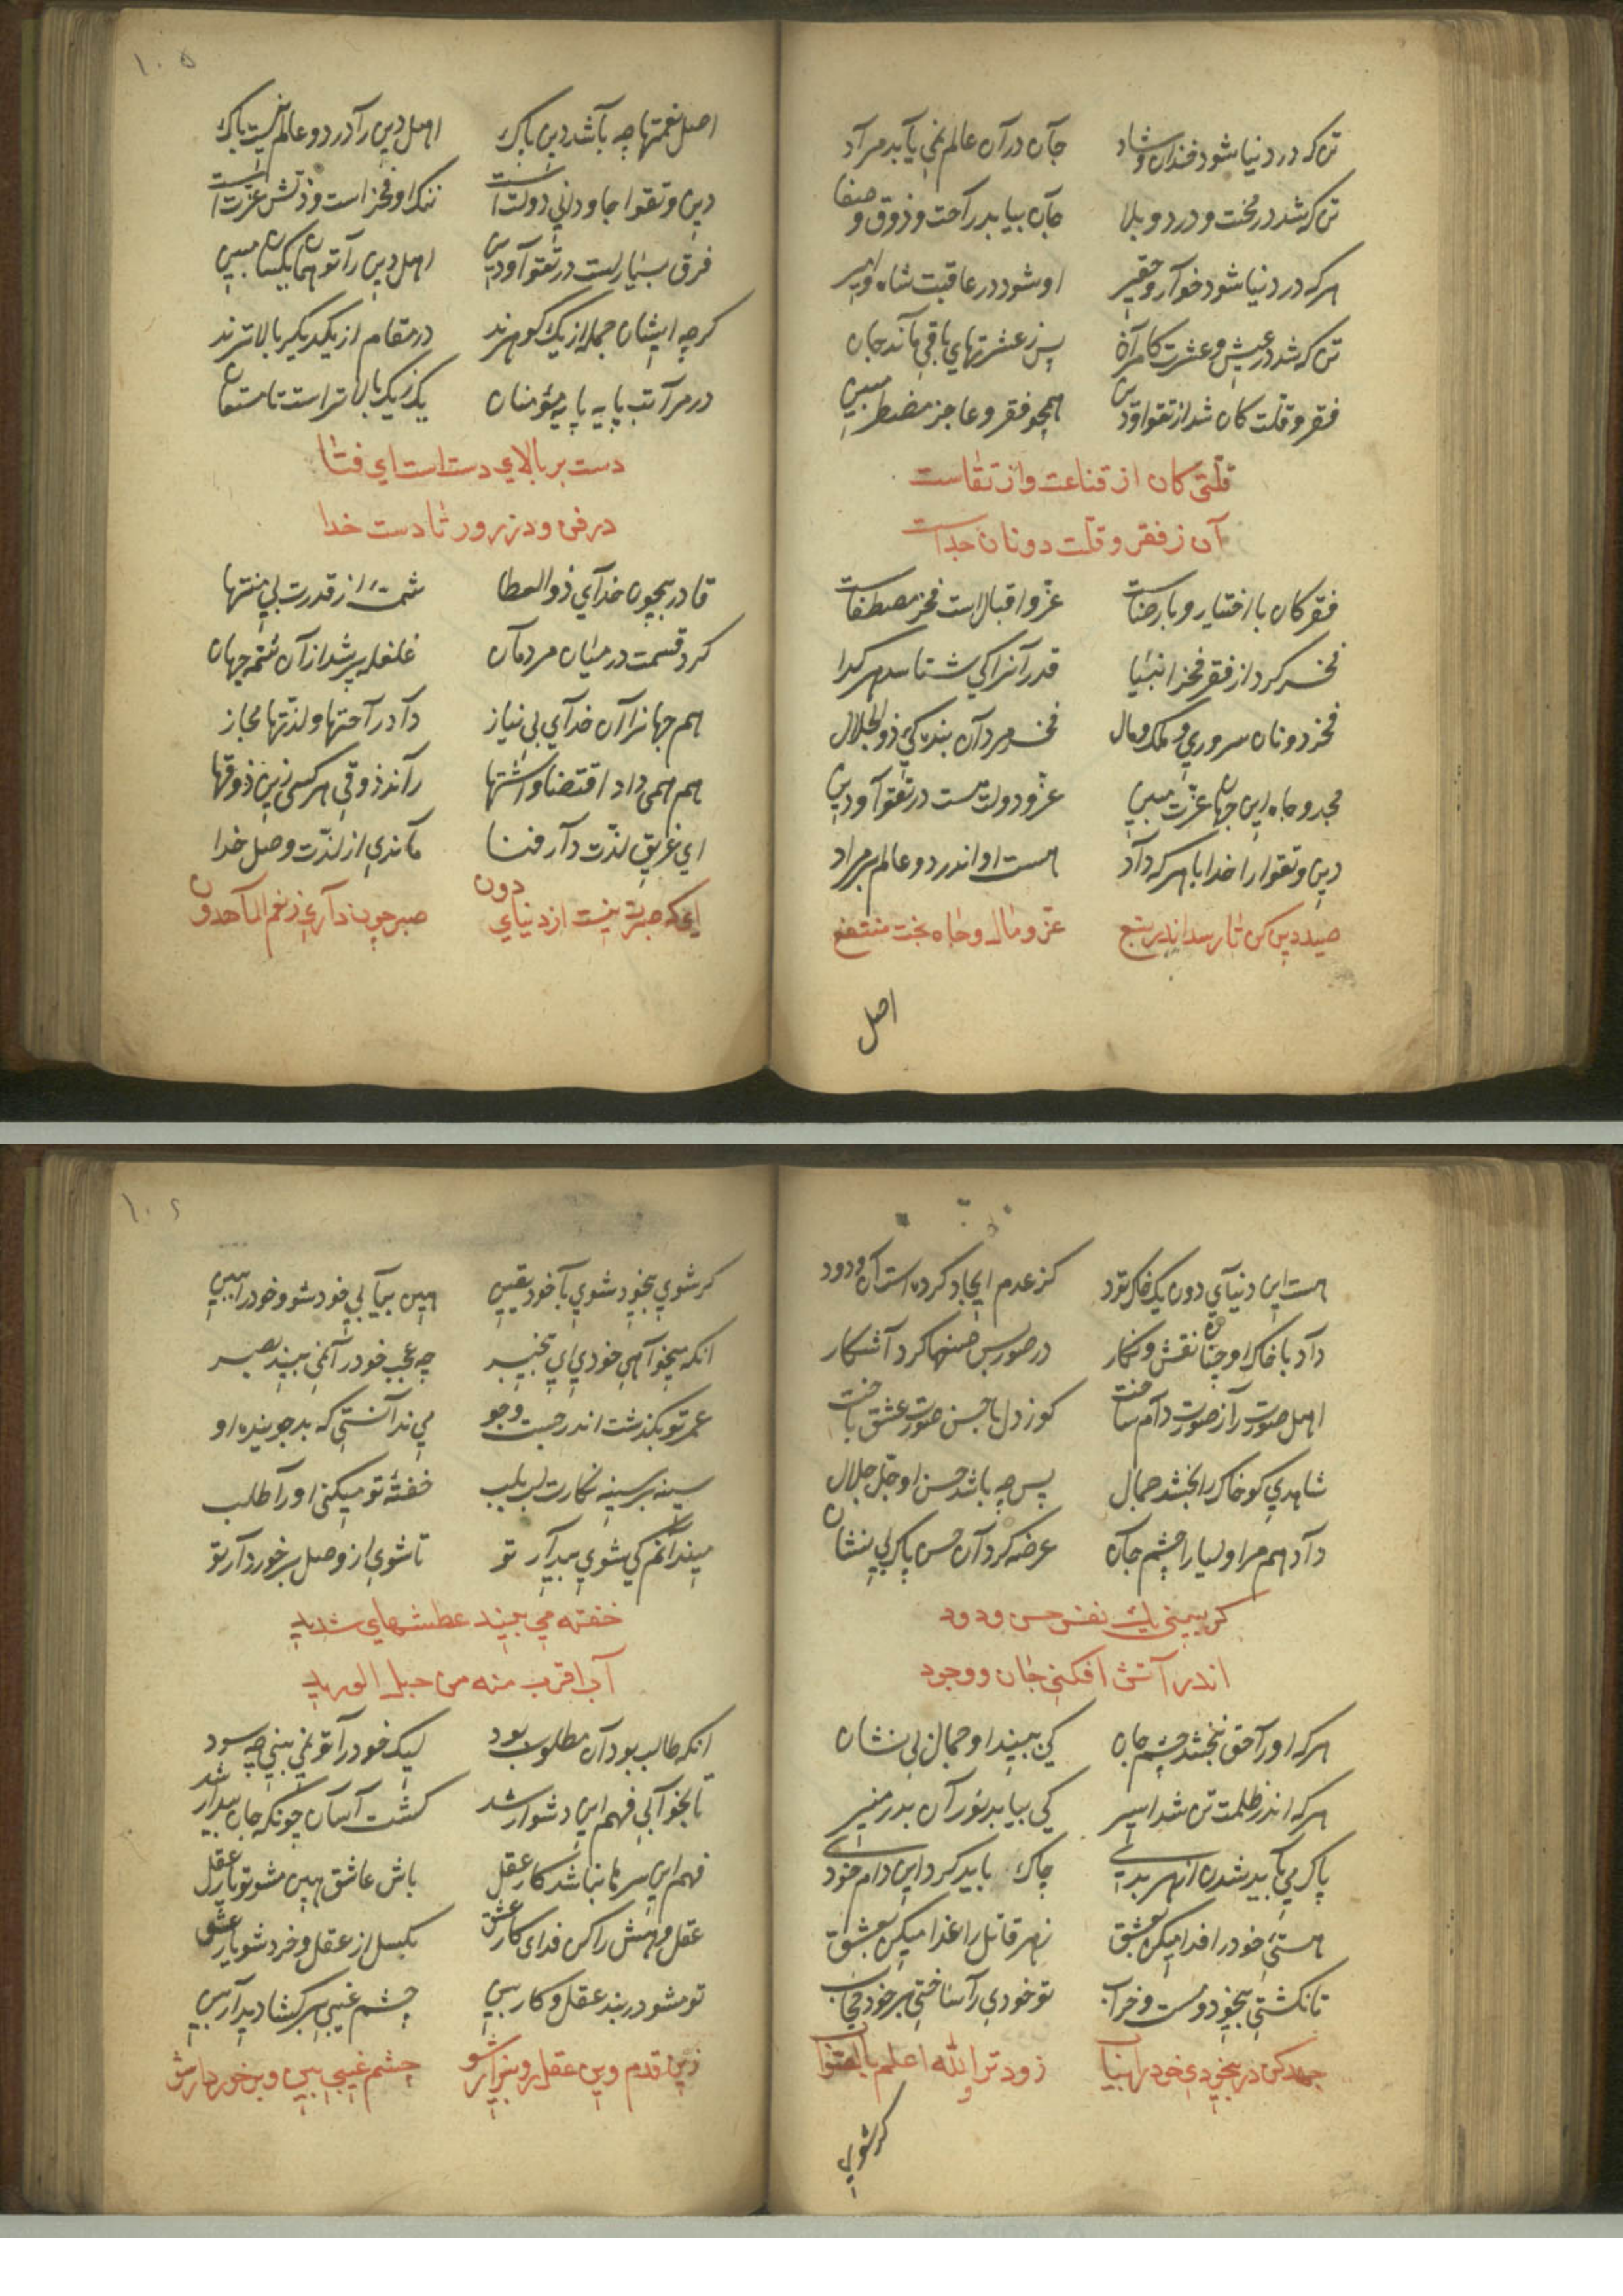 تن که در دنیا شود خندان و شاد جان در آن عالم نمی یابد مراد
تن که شد در محنت و درد و بلا جان بیابد راحت و ذوق و صفا
هرکه در دنیا شود خوار و حقیر او شود در عاقبت شاه و امیر
تن که شد در عیش و عشرت کامران پس ز عشرتهای باقی ماند جان
فقر و قلت کان شد از تقوا و دین همچو فقر و عاجز مضطر مبین
قلتی کان از قناعت وز تقاست
آن ز فقر و قلت دونان جداست
فقر کان با اختیار و با رضاست عز و اقبال است فخر مصطفاست
فخر کرد از فقر فخر انبیا قدر آنرا کی شناسد هر کدا
فخر دونان سروری و ملک و مال فخر مردان بندکی ذو الجلال
مجد و جاه این جهان عزت مبین عز و دولت هست در تقوا و دین
دین و تقوا را خدا با هرکه داد هست او اندر دو عالم بر مراد
صید دین کن تا رسد اندر تبع عز و مال و جاه بخت منتفع
اصل
۱۰۵
اصل نعمتها چه باشد دین پاک اهل دین را در دو عالم نیست باک
دین و تقوا جاودانی دولت است ننک او فخر است و ذلتش عزت است
فرق بسیار است در تقوا و دین اهل دین را تو همان یکسان مبین
کرچه ایشان جمله از یک کوهرند در مقام از یکدیکر بالاترند
در مراتب پایه پایه مؤمنان یک ز یک بالاتر است تا مستعان
دست بر بالای دست است ای فتا
در فن و در زور تا دست خدا
قادر بیچون خدای ذو العطا شمۀ از قدرت بی منتها
کرد قسمت در میان مردمان غلغله پر شد از آن شمه جهان
هم جهانرا آن خدای بی نیاز داد راحتها و لذتها مجاز
هم همی داد اقتضا و اشتها راند ذوقی هر کسی زین ذوقها
ای غریق لذت دار فنا ماندی از لذت وصل خدا
ای که صبرت نیست از دنیای دون صبر چون داری ز نعم الماهدون
هست این دنیای دون یک خاک تود کز عدم ایجاد کرده است آن ودود
داد با خاک او چنان نقش و نکار در صور بس حسنها کرد آشکار
اهل صورت را ز صورت دام ساخت کو ز دل با حسن صورت عشق باخت
شاهدی کو خاک را بخشد جمال پس چه باشد حسن او جل جلال
داد هم مر اولیا را چشم جان عرضه کرد آن حسن پاک بی نشان
کر ببینی یک نفس حسن ودود
اندر آتش افکنی جان و وجود
هرکه او را حق نبخشد چشم جان کی ببیند او جمال بی نشان
هرکه اندر ظلمت تن شد اسیر کی بیابد نور آن بدر منیر
پاک می باید شدن از هر بدیی چاک باید کرد این دام خودیی
هستی خود را فدا میکن بعشق زهر قاتل را غذا میکن بعشق
تا نکشتی بیخود و مست و خراب تو خودی را ساختی بر خود حجاب
جهد کن در بیخودی خود را بیاب زودتر و الله اعلم بالصواب
کر شوی
۱۰۶
کر شوی بیخود شوی با خود یقین هین بیا بی خود شو و خود را ببین
انکه میخواهی خودی ای بیخبر چه عجب خود را نمی بیند بصر
عمر تو بکذشت اندر جست و جو می ندانستی که بد جوینده او
سینه بر سینه نکارت لب بلب خفتۀ تو میکنی او را طلب
می ندانم کی شوی بیدار تو تا شوی از وصل برخوردار تو
خفته می بیند عطشهای شدید
آب اقرب منه من حبل الورید
انکه طالب بود آن مطلوب بود لیک خود را تو نمی بینی چه سود
تا بخوابی فهم این دشوار شد کشت آسان چونکه جان بیدار شد
فهم این سر تا نباشد کار عقل باش عاشق هین مشو تو یار عقل
عقل و هش را کن فدای کار عشق بکسل از عقل و خرد شو یار عشق
تو مشو در بند عقل و کار بین چشم غیبی برکشا دیدار بین
زین قدم وین عقل رو بیزار شو چشم غیبی بین و برخوردار شو